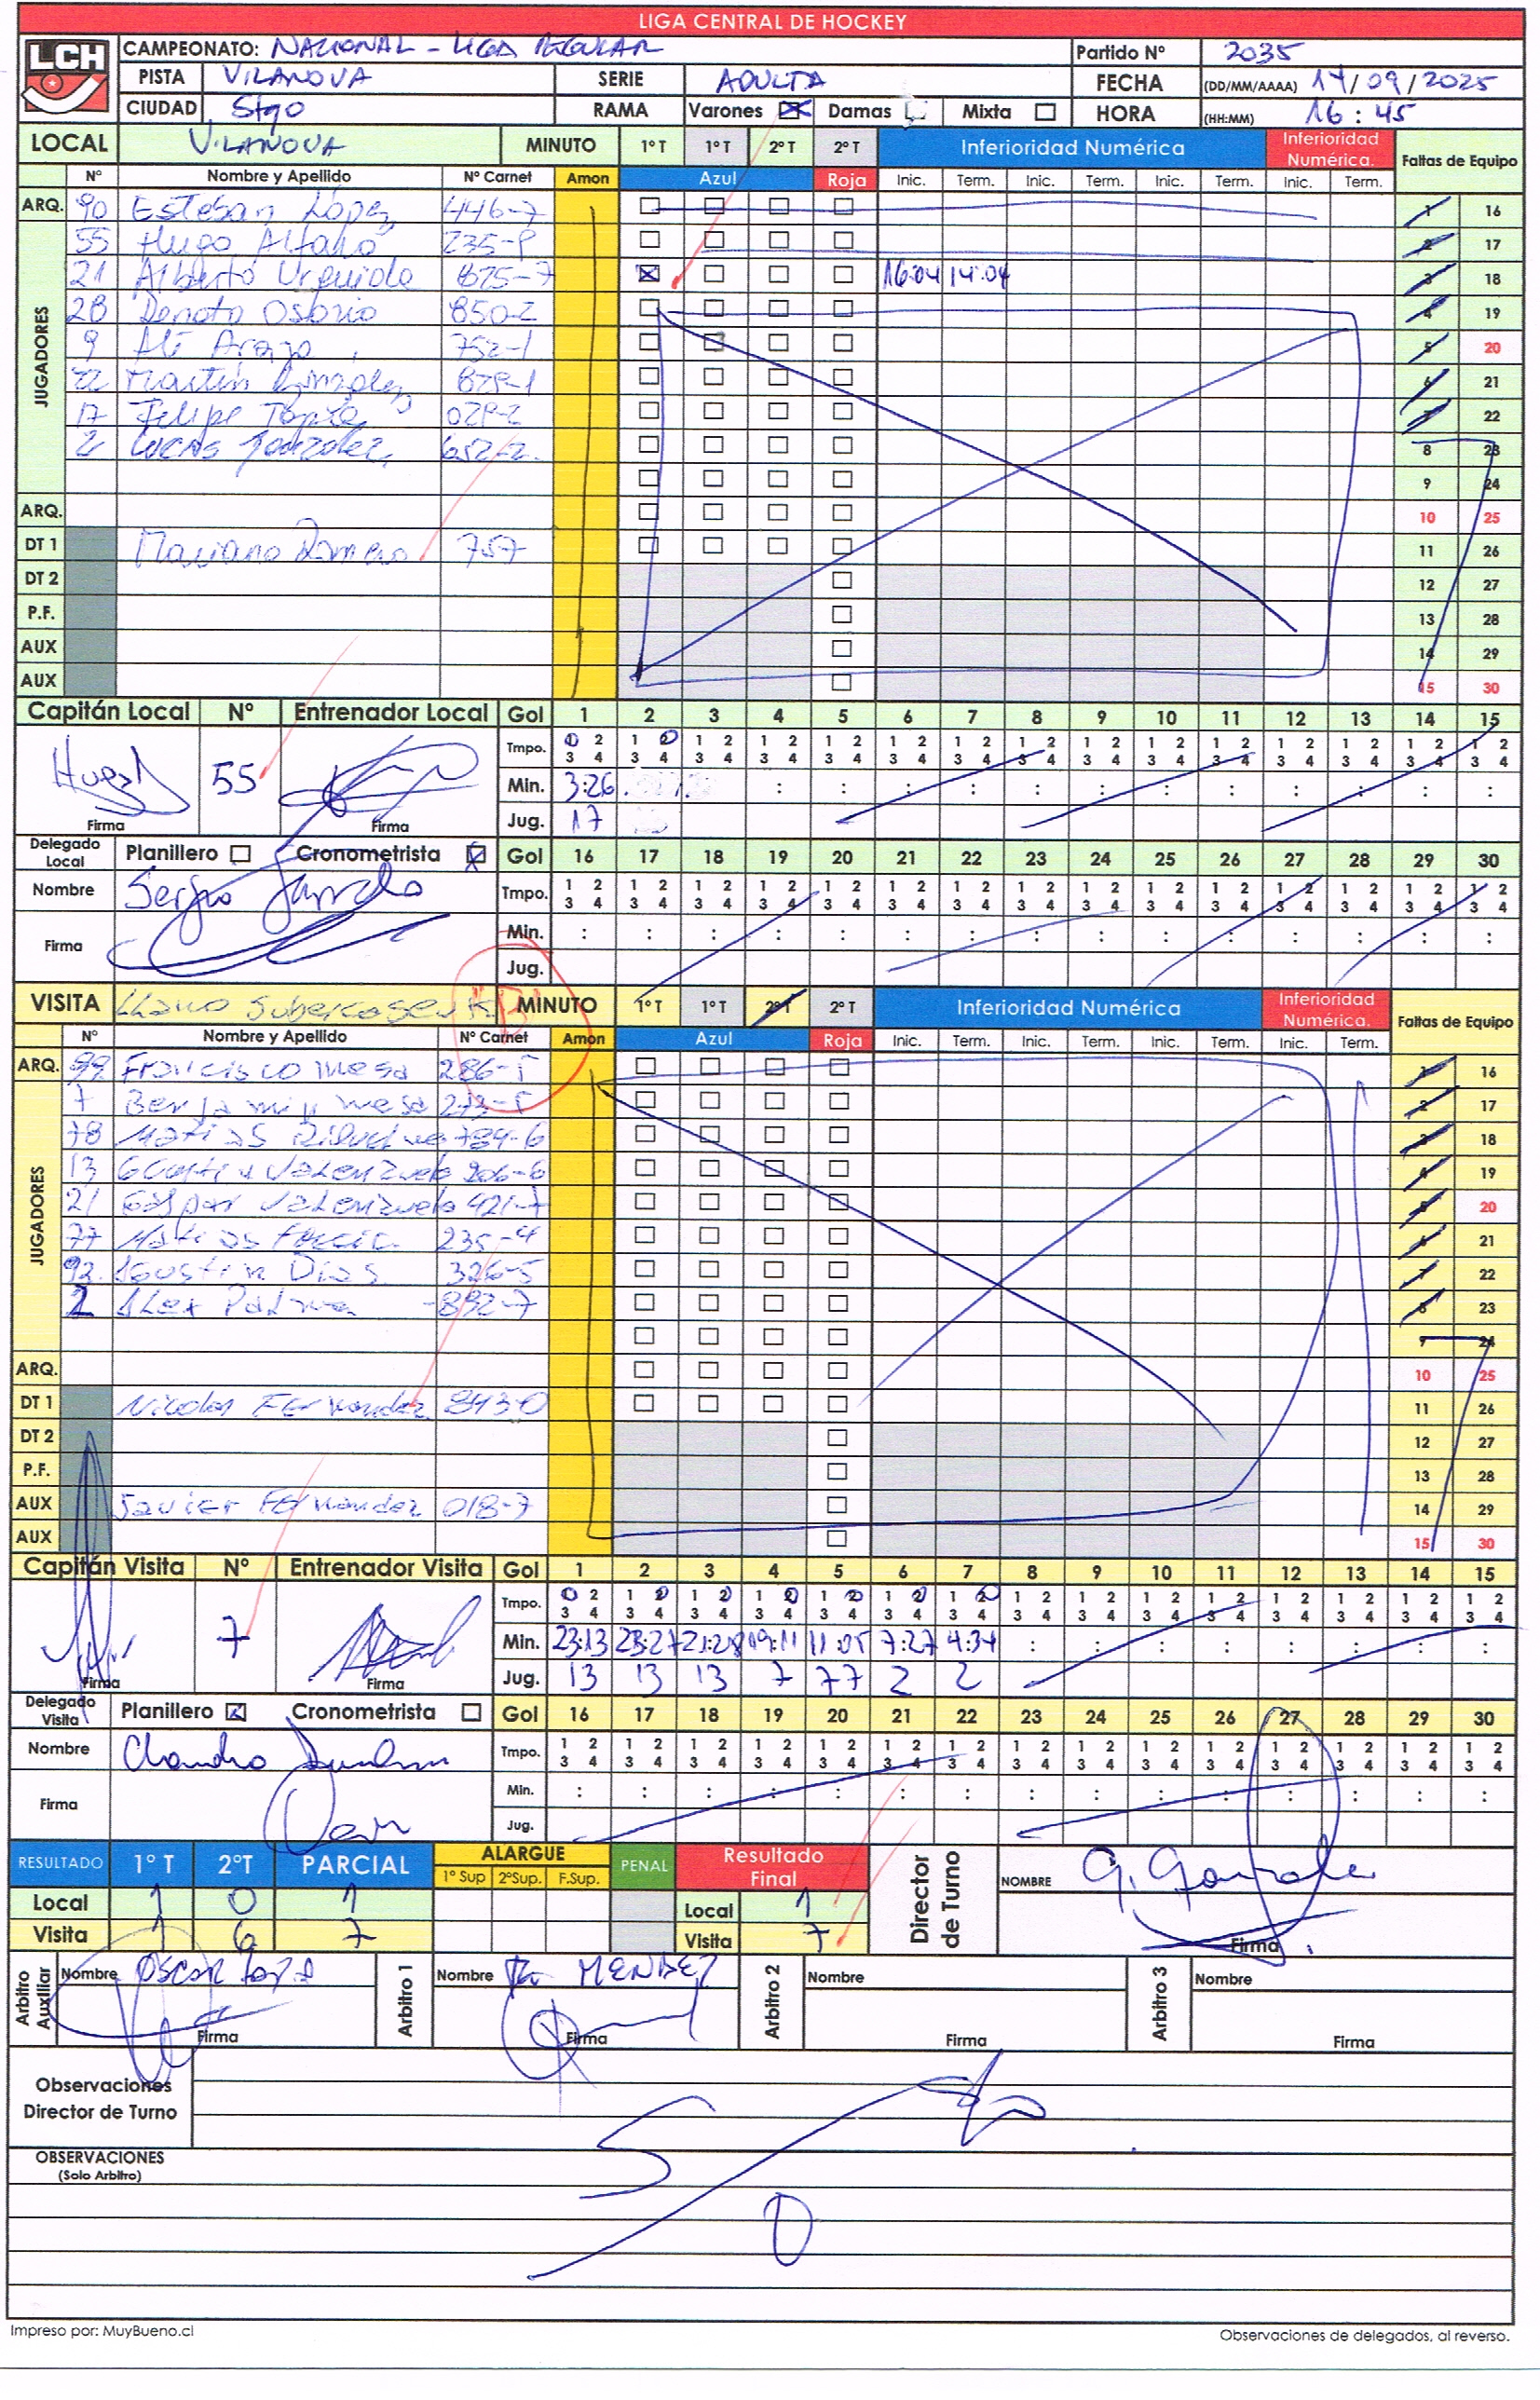 LIGA CENTRAL DE HOCKEY
LCH
CAMPEONATO: NACIONAL - LIGA REGULAR Partido Nº 2035
PISTA VILANOVA SERIE ADULTA FECHA (DD/MM/AAAA) 14/09/2025
CIUDAD Stgo RAMA Varones Damas Mixta HORA (HH:MM) 16:45
LOCAL VILANOVA MINUTO 1º T 1º T 2º T 2º T Inferioridad Numérica Inferioridad Numérica. Faltas de Equipo
Nº Nombre y Apellido Nº Carnet Amon Azul Roja Inic. Term. Inic. Term. Inic. Term. Inic. Term.
ARQ. 90 Esteban López 446-7 1 16
JUGADORES
55 Hugo Alfaro 235-P 2 17
21 Alberto Urquiola 875-7 16:04 14:04 3 18
28 Donato Osorio 850-2 4 19
9 Ali Araya 752-1 5 20
22 Martin Gonzalez 6 21
17 Felipe Tapia 7 22
2 Lucas Gonzalez 652-2 8 23
9 24
ARQ. 10 25
DT 1 Mariano Romero 757 11 26
DT 2 12 27
P.F. 13 28
AUX 14 29
AUX 15 30
Capitán Local Nº Entrenador Local Gol 1 2 3 4 5 6 7 8 9 10 11 12 13 14 15
55 Tmpo. 1 2 3 4 1 2 3 4 1 2 3 4 1 2 3 4 1 2 3 4 1 2 3 4 1 2 3 4 1 2 3 4 1 2 3 4 1 2 3 4 1 2 3 4 1 2 3 4 1 2 3 4 1 2 3 4 1 2 3 4
Min. 3:26 : : : : : : : : : : : :
Firma Firma Jug. 17
Delegado Local Planillero Cronometrista Gol 16 17 18 19 20 21 22 23 24 25 26 27 28 29 30
Nombre Sergio Tmpo. 1 2 3 4 1 2 3 4 1 2 3 4 1 2 3 4 1 2 3 4 1 2 3 4 1 2 3 4 1 2 3 4 1 2 3 4 1 2 3 4 1 2 3 4 1 2 3 4 1 2 3 4 1 2 3 4 1 2 3 4
Firma Min. : : : : : : : : : : : : : : :
Jug.
VISITA Llano Subercaseaux "B" MINUTO 1º T 1º T 2º T 2º T Inferioridad Numérica Inferioridad Numérica. Faltas de Equipo
Nº Nombre y Apellido Nº Carnet Amon Azul Roja Inic. Term. Inic. Term. Inic. Term. Inic. Term.
ARQ. 99 Francisco Mesa 286-5 1 16
JUGADORES
7 Benjamin Mesa 273-5 2 17
78 Matias 784-6 3 18
13 Valenzuela 206-6 4 19
21 Gaspar Valenzuela 421-7 5 20
77 Matias 235-4 6 21
93 Agustin Dias 326-5 7 22
2 Alex Palma 892-7 8 23
9 24
ARQ. 10 25
DT 1 Nicolas Fernandez 843-0 11 26
DT 2 12 27
P.F. 13 28
AUX Javier Fernandez 018-7 14 29
AUX 15 30
Capitán Visita Nº Entrenador Visita Gol 1 2 3 4 5 6 7 8 9 10 11 12 13 14 15
7 Tmpo. 1 2 3 4 1 2 3 4 1 2 3 4 1 2 3 4 1 2 3 4 1 2 3 4 1 2 3 4 1 2 3 4 1 2 3 4 1 2 3 4 1 2 3 4 1 2 3 4 1 2 3 4 1 2 3 4 1 2 3 4
Min. 23:13 23:27 21:28 19:11 11:05 7:27 4:34 : : : : : : : :
Firma Firma Jug. 13 13 13 7 77 2 2
Delegado Visita Planillero Cronometrista Gol 16 17 18 19 20 21 22 23 24 25 26 27 28 29 30
Nombre Tmpo. 1 2 3 4 1 2 3 4 1 2 3 4 1 2 3 4 1 2 3 4 1 2 3 4 1 2 3 4 1 2 3 4 1 2 3 4 1 2 3 4 1 2 3 4 1 2 3 4 1 2 3 4 1 2 3 4 1 2 3 4
Firma Min. : : : : : : : : : : : : : : :
Jug.
RESULTADO 1º T 2ºT PARCIAL ALARGUE 1º Sup 2ºSup. F.Sup. PENAL Resultado Final Director de Turno NOMBRE G. Gonzalez
Local 1 0 1 Local 1
Visita 1 6 7 Visita 7 Firma
Arbitro Auxiliar Nombre OSCAR Arbitro 1 Nombre MENDEZ Arbitro 2 Nombre Arbitro 3 Nombre
Firma Firma Firma Firma
Observaciones
Director de Turno
OBSERVACIONES
(Solo Arbitro)
S/O
Impreso por: MuyBueno.cl Observaciones de delegados, al reverso.